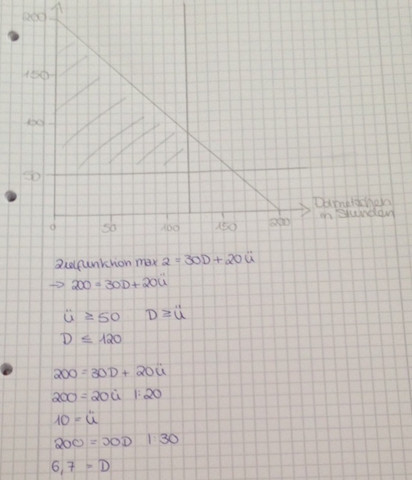 200
150
100
50
0 50 100 150 200
Dolmetschen
in Stunden
Zielfunktion max Z = 30D + 20Ü
→ 200 = 30D + 20Ü
Ü ≥ 50 D ≥ Ü
D ≤ 120
200 = 30D + 20Ü
200 = 20Ü |:20
10 = Ü
200 = 30D | 30
6,7 = D